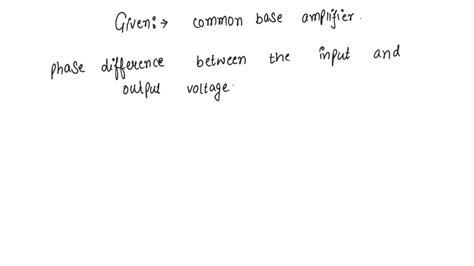 Given:→ common base amplifier.
phase difference between the input and
output voltage.